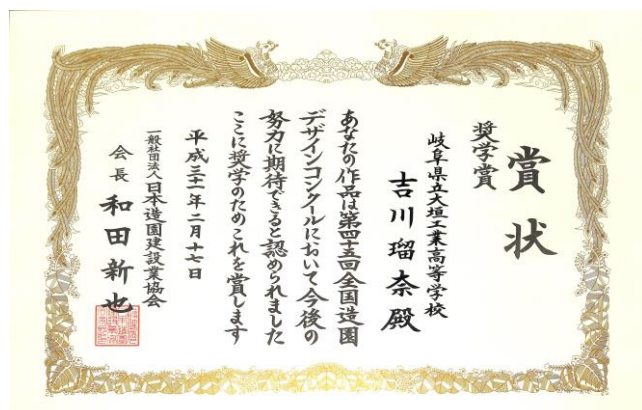 賞状
奨学賞
岐阜県立大垣工業高等学校
吉川瑠奈殿
あなたの作品は第四十五回全国造園
デザインコンクールにおいて今後の
努力に期待できると認められました
ここに奨学のためこれを賞します
平成三十一年二月十七日
一般社団法人日本造園建設業協会
会長 和田新也